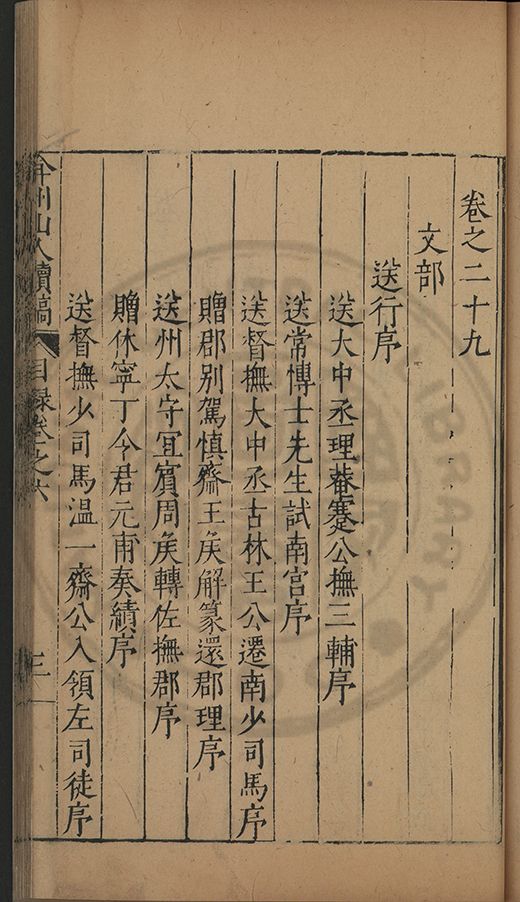 卷之二十九
文部
送行序
送大中丞理菴蹇公撫三輔序
送常博士先生試南宮序
送督撫大中丞古林王公遷南少司馬序
贈郡別駕慎齋王矦解篆還郡理序
送州太守宜賓周矦轉佐撫郡序
贈休寧丁令君元甫奏績序
送督撫少司馬温一齋公入領左司徒序
弇州山人續稿 目録卷之六 三